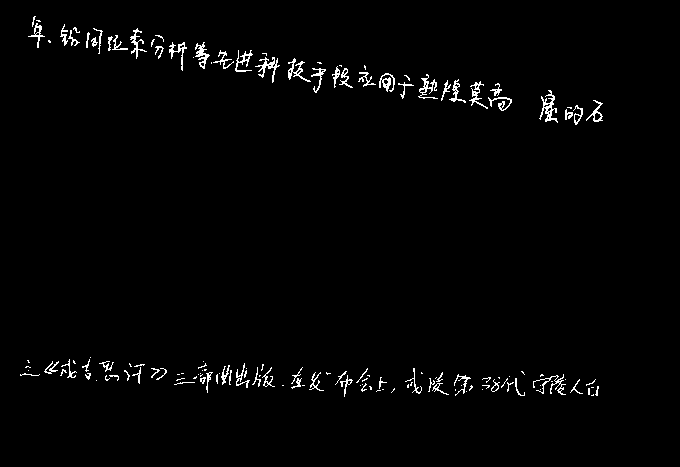 年、铅同位素分析等先进科技手段应用于敦煌莫高 窟的石
《成吉思汗》三部曲出版.在发布会上,成陵第38代守陵人白